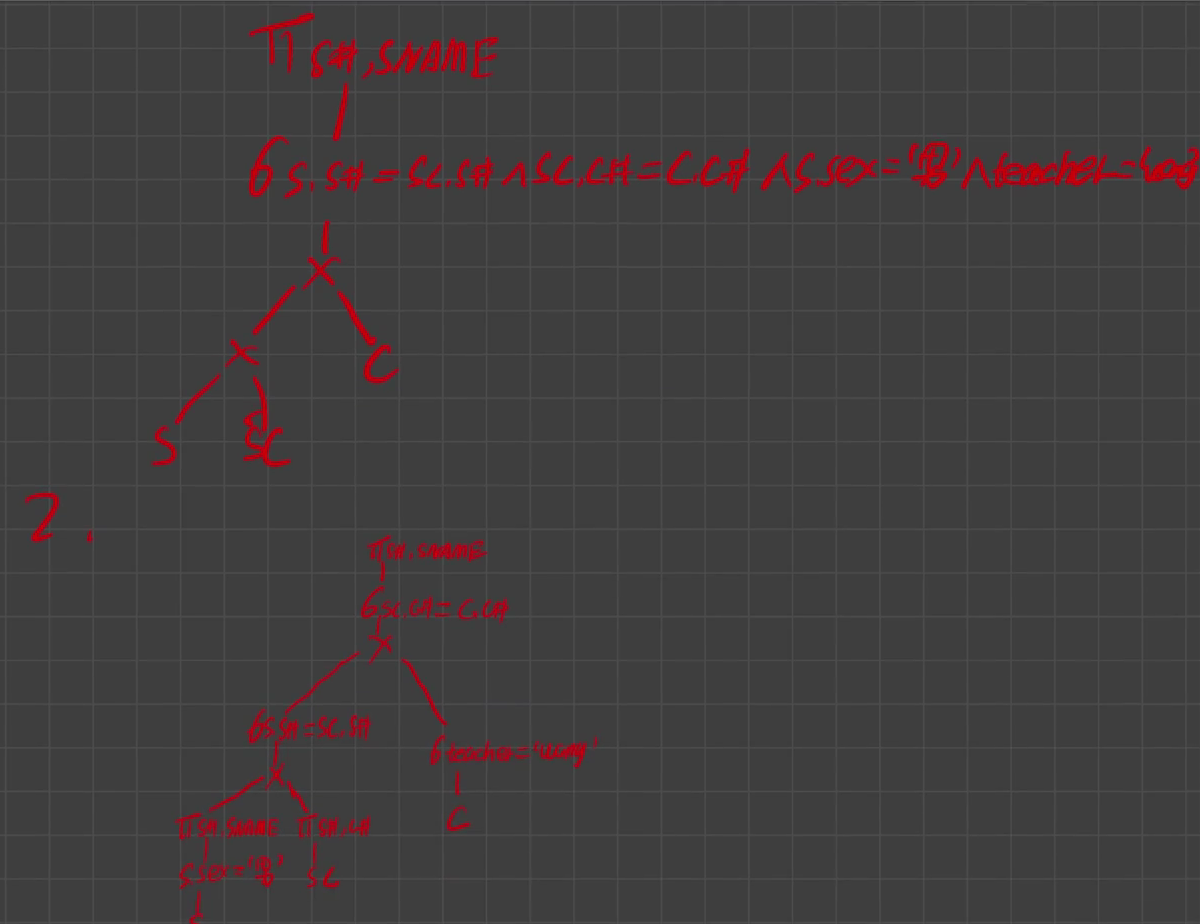 π S#,SNAME
σ S.S#=SC.S# ∧ SC.C#=C.C# ∧ S.sex='男' ∧ teacher=
×
× C
S SC
2.
π S#.SNAME
σ SC.C#=C.C#
×
σ S.S#=SC.S#
σ teacher='wang'
×
C
π S#.SNAME π S#.C#
σ sex='男' SC